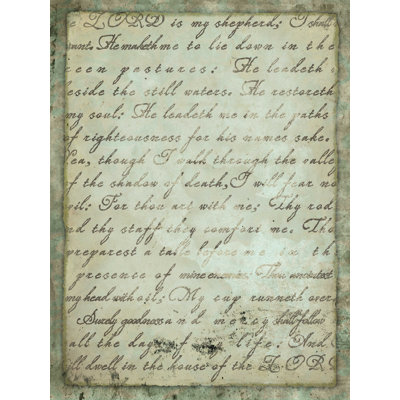 e LORD is my shepherd; I shall
want. He maketh me to lie down in the
reen pastures: He leadeth
eside the still waters. He restoreth
my soul: He leadeth me in the paths
of righteousness for his names sake.
Yea, though I walk through the valle
f the shadow of death, I will fear no
vil: For thou art with me; Thy rod
nd thy staff they comfort me. Tho
preparest a table before me in th
presence of mine enemies: Thou anointest
my head with oil; My cup runneth over
Surely goodness and mercy shall follow
all the day of life: And
ill dwell in the house of the LOR